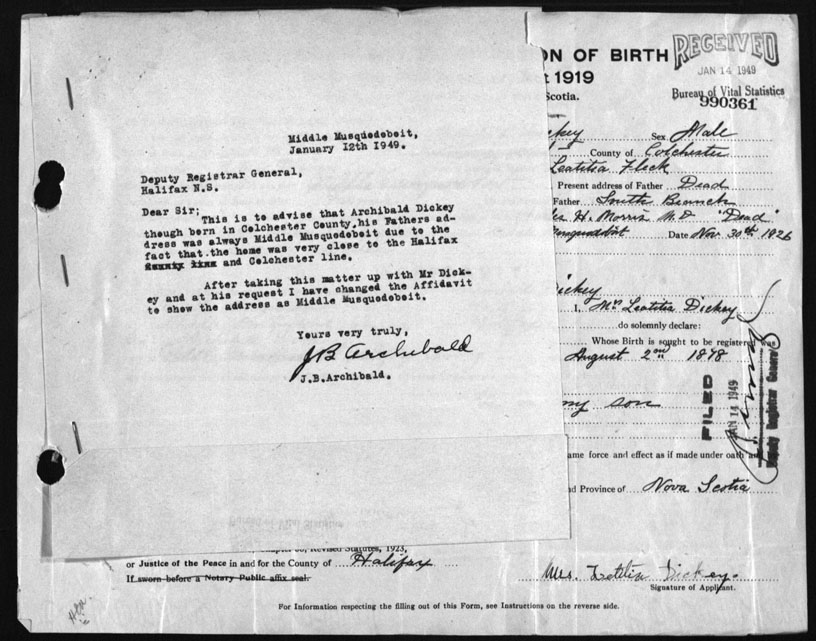 Middle Musquodoboit,
January 12th 1949.
Deputy Registrar General,
Halifax N.S.
Dear Sir;
This is to advise that Archibald Dickey
though born in Colchester County,his Fathers ad-
dress was always Middle Musquodoboit due to the
fact that.the home was very close to the Halifax
and Colchester line.
After taking this matter up with Mr Dick-
ey and at his request I have changed the Affidavit
to show the address as Middle Musquodoboit.
Yours very truly,
J B Archibald
J.B.Archibald.
ON OF BIRTH
t 1919
Scotia.
RECEIVED
JAN 14 1949
Bureau of Vital Statistics
990361
ckey Sex Male
County of Colchester
Laetitia Fleck
Present address of Father Dead
Father South Branch
H. Morris M.D "Dead"
Date Nov 30th 1926
Dickey
I, Mrs Laetitia Dickey
do solemnly declare:
Whose Birth is sought to be registered, was
August 2nd 1878
my son
FILED
JAN 14 1949
Deputy Registrar General
ame force and effect as if made under oath
nd Province of Nova Scotia
Revised Statutes, 1923,
or Justice of the Peace in and for the County of Halifax
If sworn before a Notary Public affix seal.
Mrs. Dickey.
Signature of Applicant.
For Information respecting the filling out of this Form, see Instructions on the reverse side.